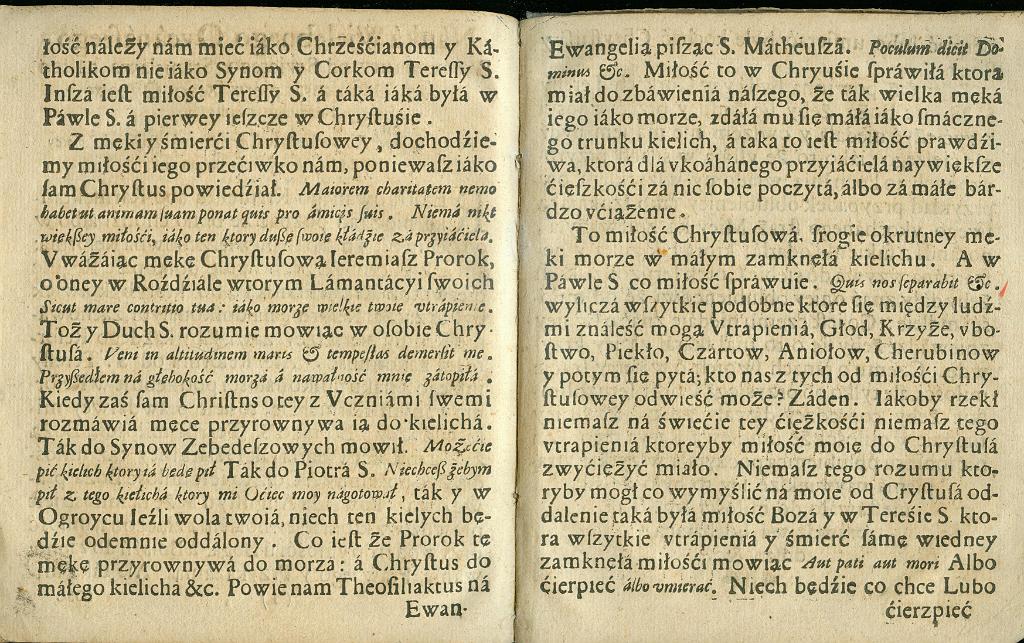 łość náleży nám mieć iáko Chrześćianom y Ká-
tholikom nie iáko Synom y Corkom Teressy S.
Insza iest miłość Teressy S. á táká iáká byłá w
Páwle S. á pierwey ieszcze w Chrystuśie.
Z męki y śmierći Chrystusowey, dochodźie-
my miłośći iego przećiwko nám, poniewasz iáko
sam Chrystus powiedźiał. Maiorem charitatem nemo
habet ut animam suam ponat quis pro ámicis suis. Niemá nikt
większey miłośći, iáko ten ktory duszę swoię kłádźie zá przyiáćielá.
Vważáiąc mękę Chrystusową Ieremiasz Prorok,
o oney w Rozdźiale wtorym Lámantácyi swoich
Sicut mare contritio tua: iáko morze wielkie twoie vtrápienie.
Toż y Duch S. rozumie mowiąc w osobie Chry-
stusá. Veni in altitudinem maris & tempestas demersit me.
Przyszedłem ná głębokość morzá á nawałność mnie zátopiłá.
Kiedy zaś sam Christns o tey z Vczniámi swemi
rozmáwiá męce przyrownywa ią do kielichá.
Ták do Synow Zebedeszowych mowił. Możećie
pić kielich ktory iá będę pił Ták do Piotrá S. Niechcesz żebym
pił z tego kielichá ktory mi Oćiec moy nágotował, ták y w
Ogroycu Ieźli wola twoiá, niech ten kielych bę-
dźie odemnie oddálony. Co iest że Prorok tę
mękę przyrownywá do morza: á Chrystus do
máłego kielicha &c. Powie nam Theofiliaktus ná
Ewan-
Ewangelią pisząc S. Mátheuszá. Poculum dicit Do-
minus &c. Miłość to w Chryuśie spráwiłá ktorą
miał do zbáwieniá nászego, że ták wielka męká
iego iáko morze, zdáłá mu się máłá iáko smáczne-
go trunku kielich, á taka to iest miłość prawdźi-
wa, ktorá dlá vkoáhánego przyiáćielá naywiększe
ćieszkośći zá nic sobie poczytá, álbo zá máłe bár-
dzo vćiążenie.
To miłość Chrystusowá, srogie okrutney mę-
ki morze w máłym zamknęłá kielichu. A w
Páwle S co miłość spráwuie. Quis nos separabit &c.
wyliczá wszytkie podobne ktore się między ludź-
mi ználeść mogą Vtrapieniá, Głod, Krzyże, vbo-
stwo, Piekło, Czártow, Aniołow, Cherubinow
y potym się pytá; kto nas z tych od miłośći Chry-
stusowey odwieść może? Záden. Iakoby rzekł
niemasz ná świećie tey ćiężkośći niemasz tego
vtrapieniá ktoreyby miłość moię do Chrystusá
zwyćiężyć miało. Niemasz tego rozumu kto-
ryby mogł co wymyślić ná moie od Crystusá od-
dalenie táká byłá miłość Bozá y w Tereśie S. kto-
ra wszytkie vtrápieniá y śmierć sámę w iedney
zamknęłá miłośći mowiąc Aut pati aut mori Albo
ćierpieć álbo vmieráć. Niech będźie co chce Lubo
ćierzpieć